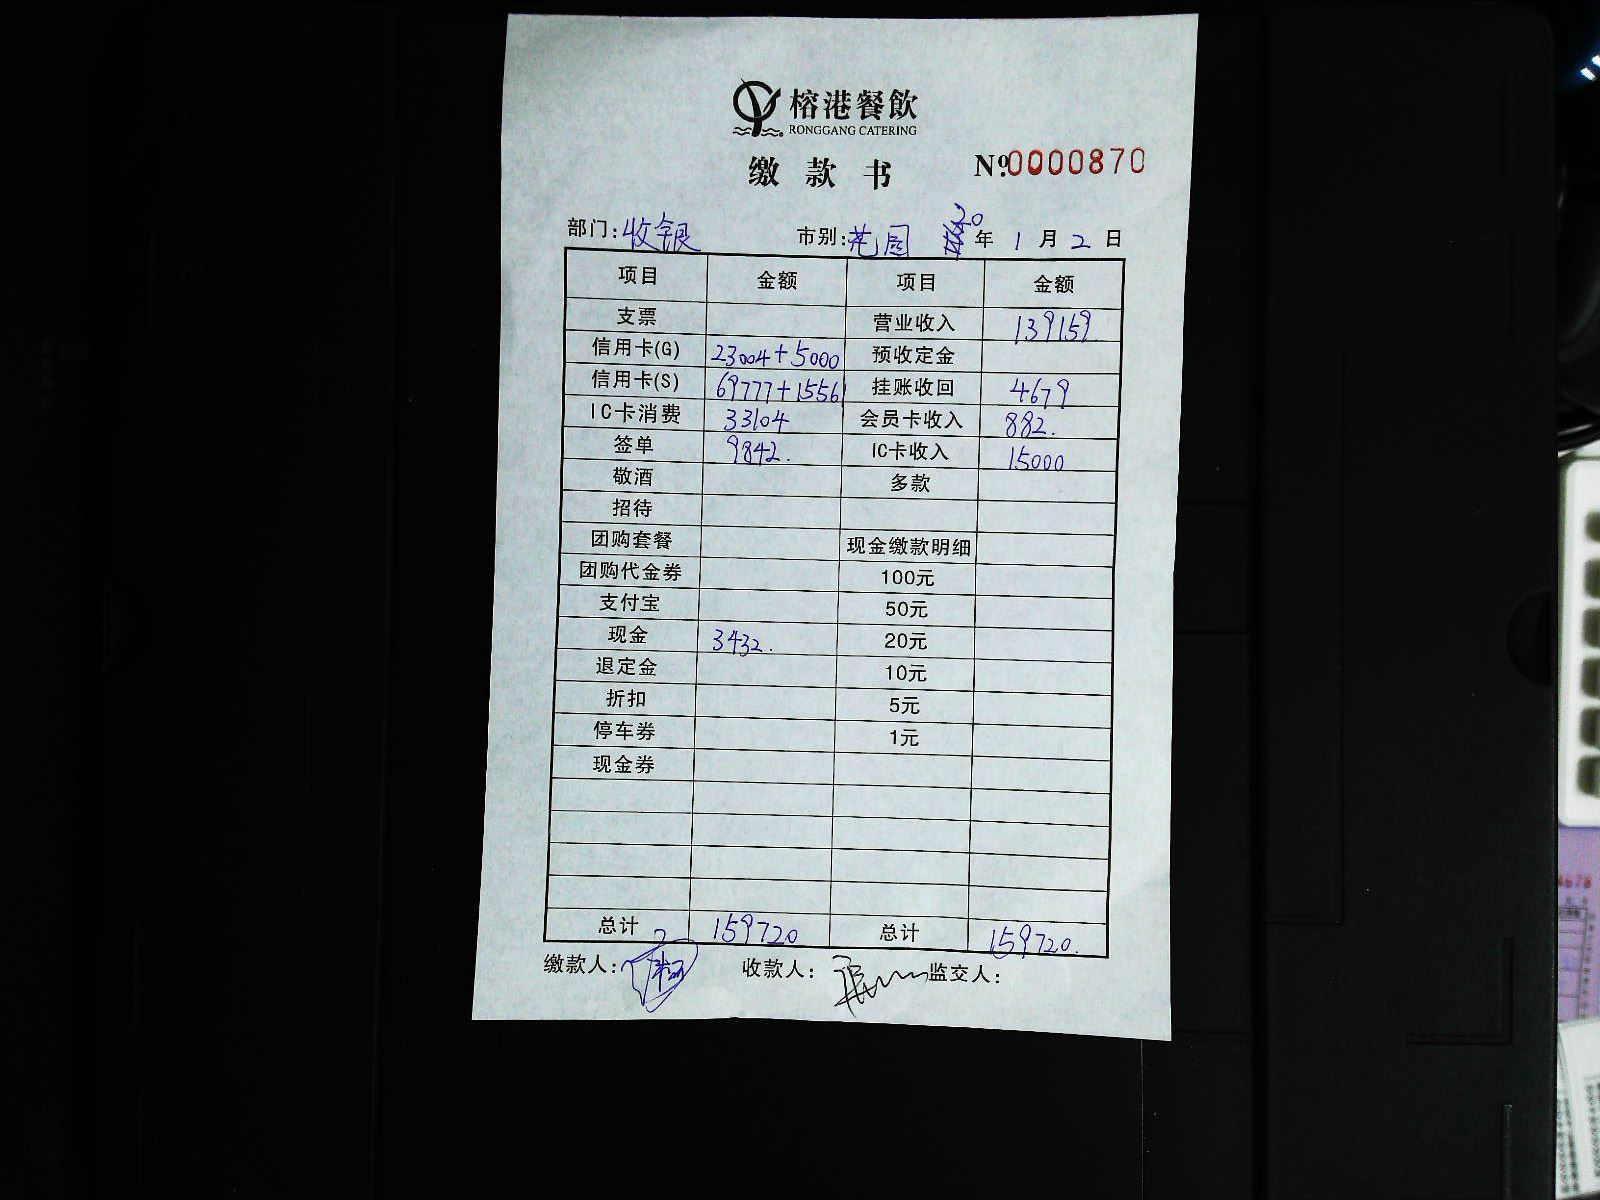 榕港餐飲
RONGGANG CATERING
缴款书 №0000870
部门:收银 市别:花园 20年1月2日
项目 金额 项目 金额
支票 营业收入 139159
信用卡(G) 23004+5000 预收定金
信用卡(S) 69777+15561 挂账收回 4679
IC卡消费 33104 会员卡收入 882.
签单 9842. IC卡收入 15000
敬酒 多款
招待
团购套餐 现金缴款明细
团购代金券 100元
支付宝 50元
现金 3432. 20元
退定金 10元
折扣 5元
停车券 1元
现金券
总计 159720 总计 159720.
缴款人: 收款人: 监交人: